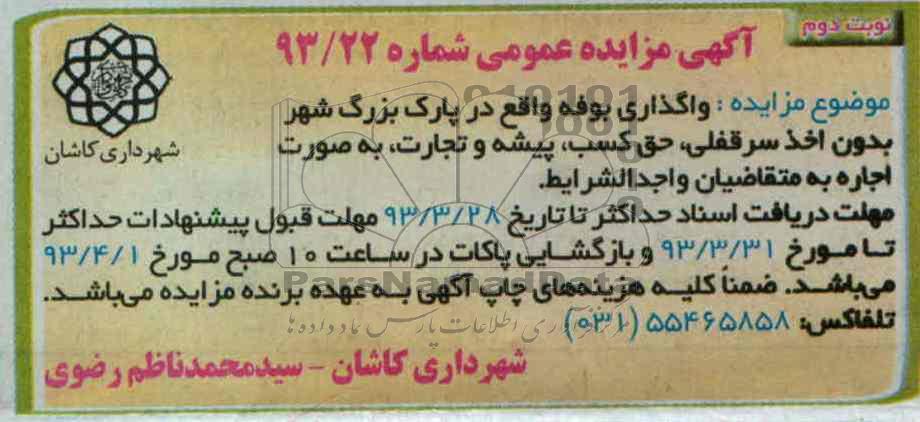 نوبت دوم
آگهی مزایده عمومی شماره ۹۳/۲۲
شهرداری کاشان
موضوع مزایده : واگذاری بوفه واقع در پارک بزرگ شهر
بدون اخذ سرقفلی، حق کسب، پیشه و تجارت، به صورت
اجاره به متقاضیان واجدالشرایط.
مهلت دریافت اسناد حداکثر تا تاریخ ۹۳/۳/۲۸ مهلت قبول پیشنهادات حداکثر
تا مورخ ۹۳/۳/۳۱ و بازگشایی پاکات در ساعت ۱۰ صبح مورخ ۹۳/۴/۱
می‌باشد. ضمناً کلیه هزینه‌های چاپ آگهی به عهده برنده مزایده می‌باشد.
تلفاکس: ۵۵۴۶۵۸۵۸ (۰۳۱)
شهرداری کاشان - سیدمحمدناظم رضوی
ParsNamadData